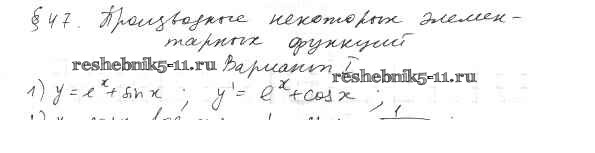 § 47. Производные некоторых элемен-
тарных функций
reshebnik5-11.ru Вариант I reshebnik5-11.ru
1) y = eˣ + sin x ; y' = eˣ + cos x ;